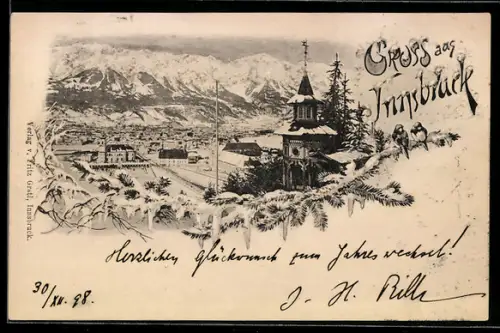 Gruss aus
Innsbruck
Verlag v. Fritz Gratl, Innsbruck.
Herzlichen Glückwunsch zum Jahreswechsel!
30/XII. 98.
J. H.